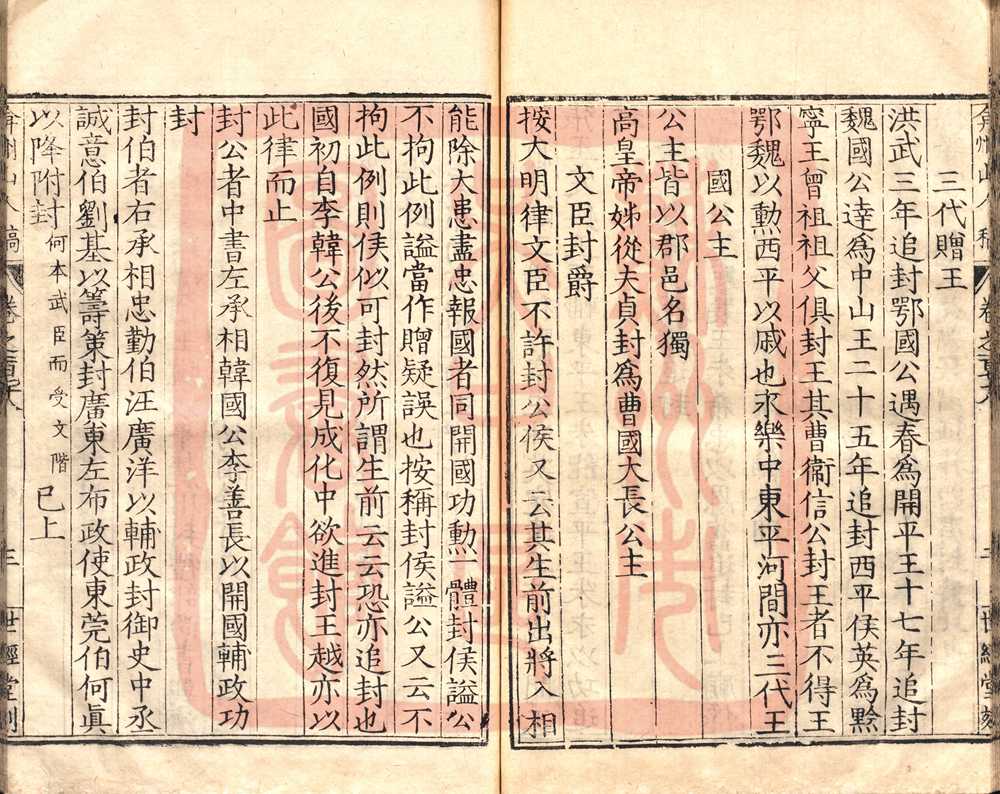 三代贈王
洪武三年追封鄂國公遇春爲開平王十七年追封
魏國公達爲中山王二十五年追封西平侯英爲黔
寧王曾祖祖父俱封王其曹衞信公封王者不得王
鄂魏以勲西平以戚也永樂中東平河間亦三代王
國公主
公主皆以郡邑名獨
高皇帝姊從夫貞封爲曹國大長公主
文臣封爵
按大明律文臣不許封公侯又云其生前出將入相
能除大患盡忠報國者同開國功勲一體封侯謚公
不拘此例謚當作贈疑誤也按稱封侯謚公又云不
拘此例則侯似可封然所謂生前云云恐亦追封也
國初自李韓公後不復見成化中欲進封王越亦以
此律而止
封公者中書左丞相韓國公李善長以開國輔政功
封
封伯者右丞相忠勤伯汪廣洋以輔政封御史中丞
誠意伯劉基以籌策封廣東左布政使東莞伯何眞
以降附封何本武臣而受文階已上
弇州山人稿 卷之 三 世經堂刻